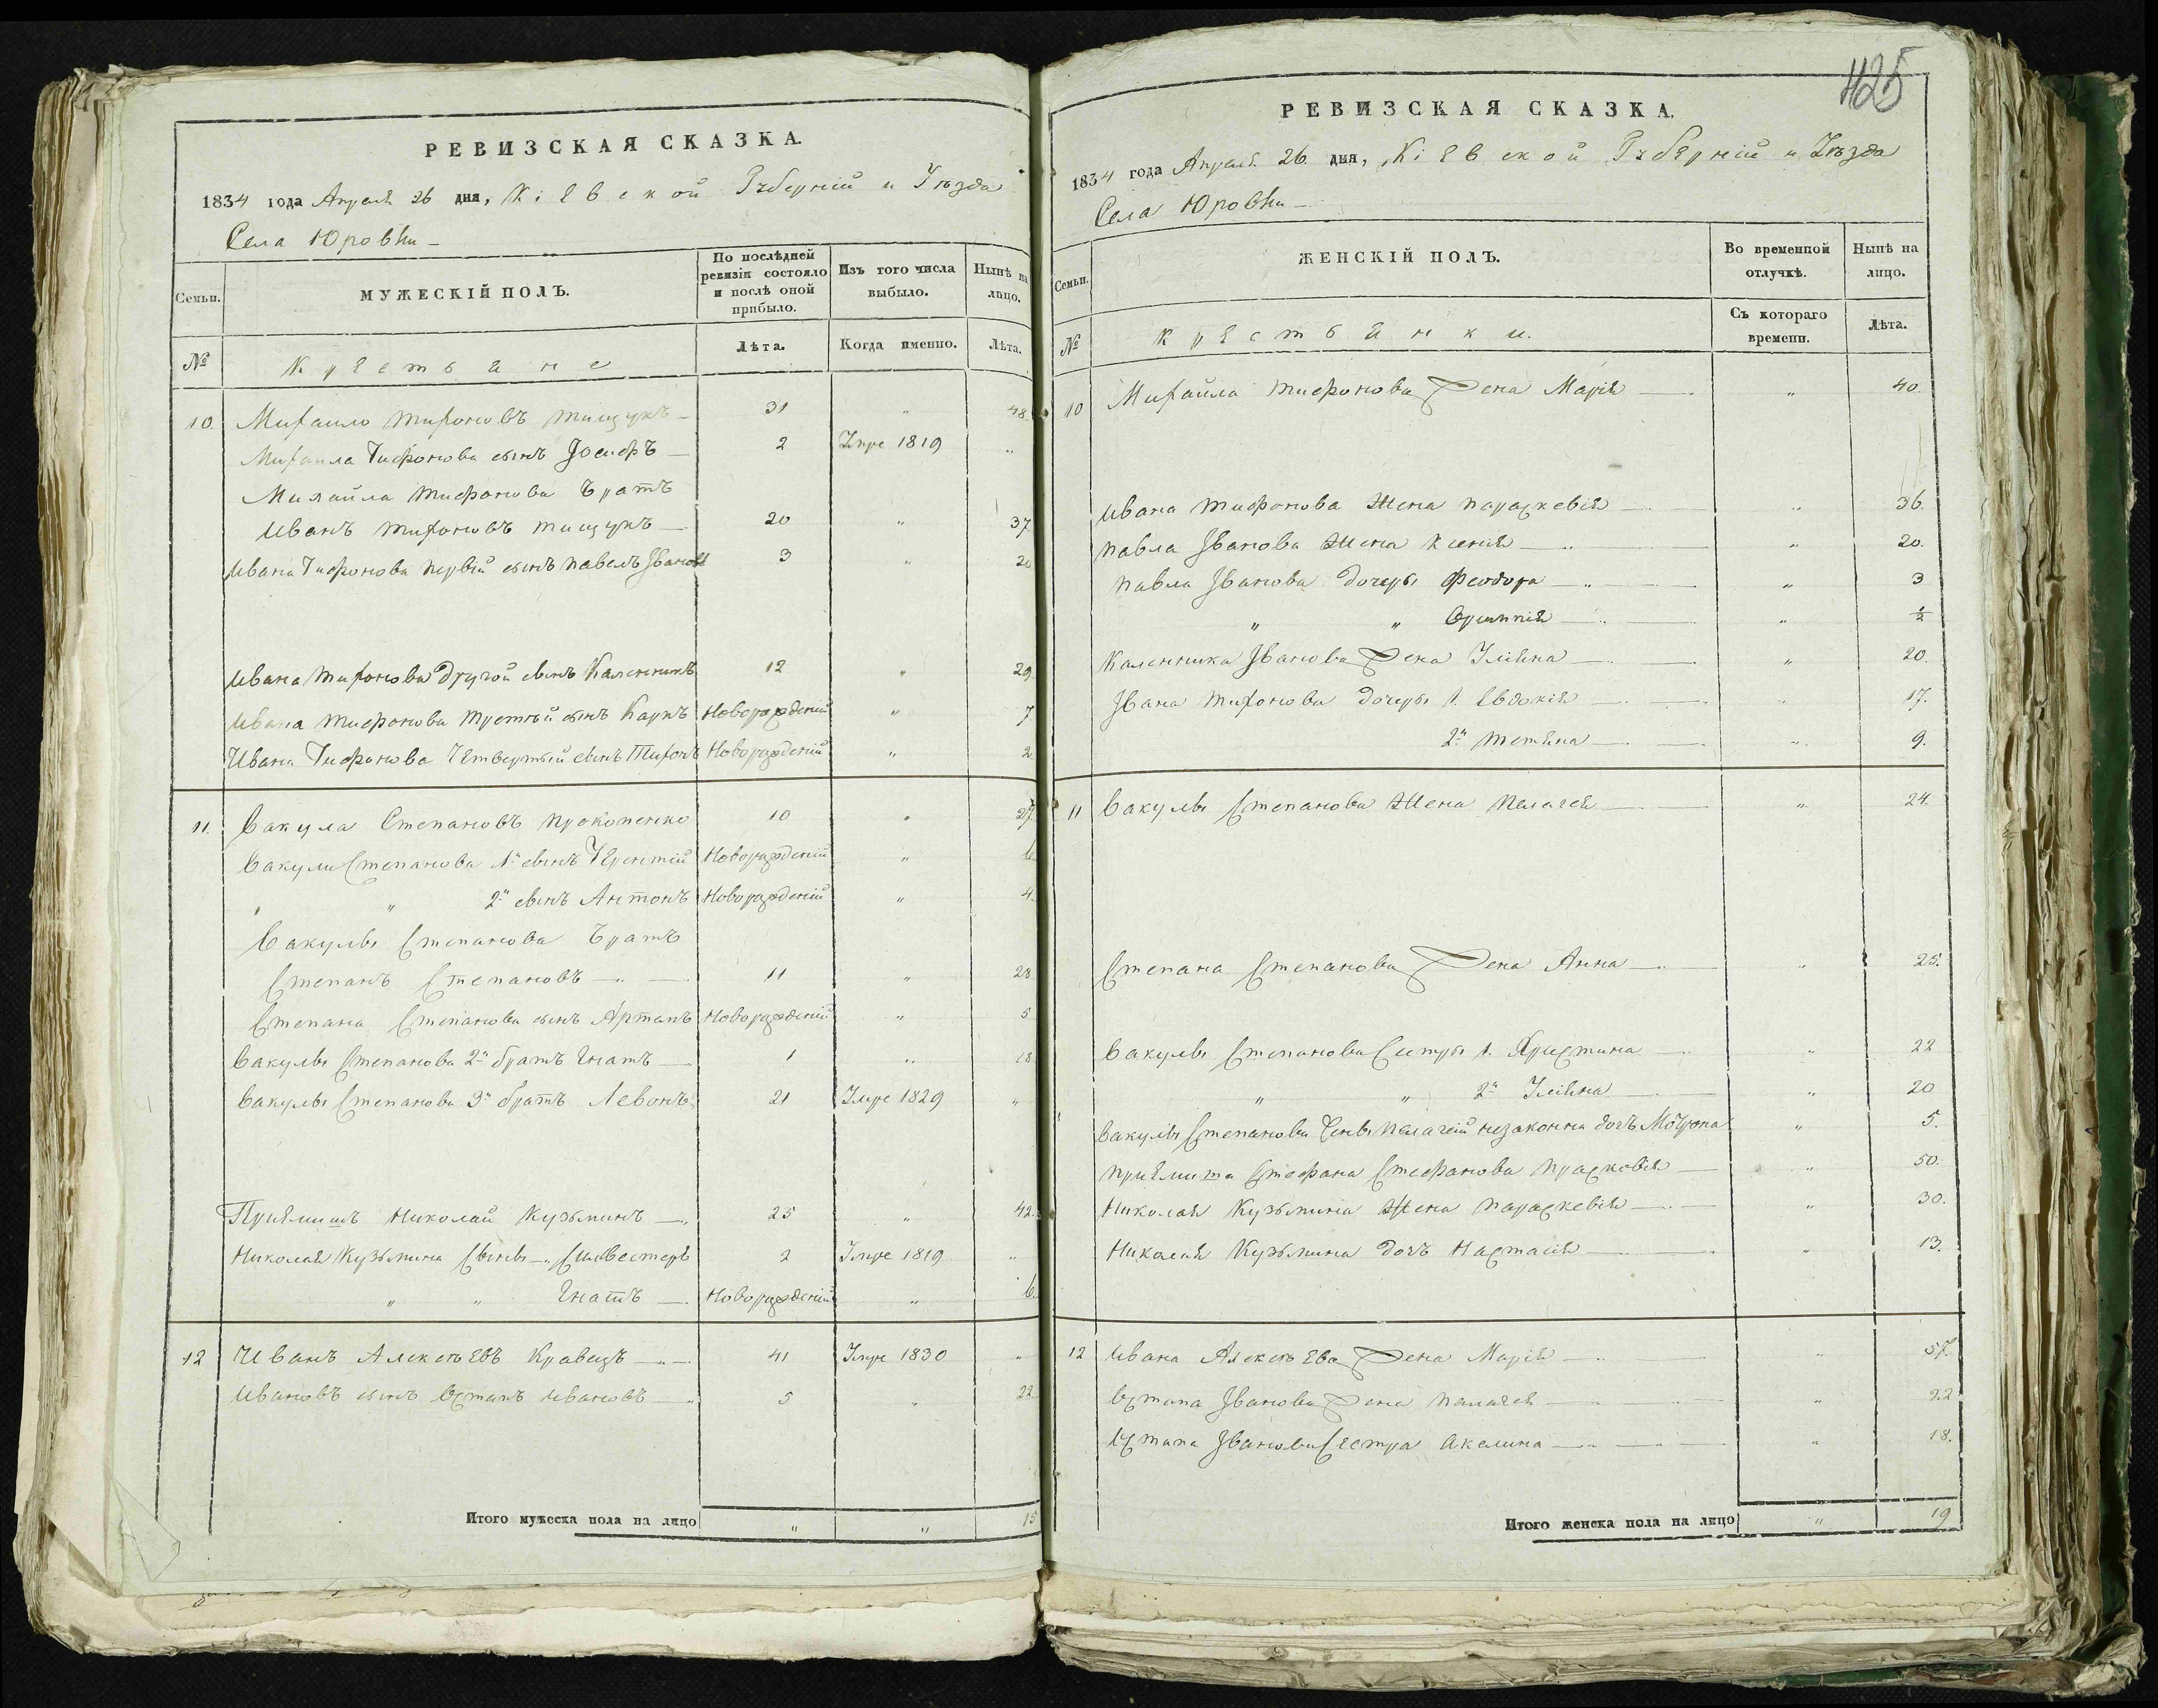 РЕВИЗСКАЯ СКАЗКА.
1834 года Апреля 26 дня, Кіевской Губерніи и Уѣзда
Села Юровки
Семьи.
МУЖЕСКІЙ ПОЛЪ.
По послѣдней ревизіи состояло и послѣ оной прибыло.
Изъ того числа выбыло.
Нынѣ на лицо.
№
Крестьяне
Лѣта.
Когда именно.
Лѣта.
10. Михаило Тифоновъ Тищукъ 31 " 48.
Михаила Тифонова сынъ Іосифъ 2 Умре 1819 "
Михайла Тифонова братъ
Иванъ Тифоновъ Тищукъ 20 " 37.
Ивана Тифонова первій сынъ Павелъ Івановъ 3 " 20
Ивана Тифонова другой сынъ Каленникъ 12 " 29
Ивана Тифонова третій сынъ Карпъ Новорожденій " 7
Ивана Тифонова четвертый сынъ Тифонъ Новорожденій " 2
11. Вакула Степановъ Прокопенко 10 " 27
Вакули Степанова 1й сынъ Терентій Новорожденій " 6
" " 2й сынъ Антонъ Новорожденій " 4.
Вакулы Степанова братъ
Степанъ Степановъ 11 " 28
Степана Степанова сынъ Артапъ Новорожденій " 5
Вакулы Степанова 2й братъ Гнатъ 1 " 18
Вакулы Степанова 3й братъ Левонъ 21 Умре 1829 "
Приямишъ Николай Кузьминъ 25 " 42.
Николая Кузьмина сыны Силвестеръ 2 Умре 1819 "
" " Гнатъ Новорожденій " 6.
12 Иванъ Алексѣевъ Кравецъ 41 Умре 1830 "
Ивановъ сынъ Остапъ Ивановъ 5 " 22
Итого мужеска пола на лицо " " 15
425
РЕВИЗСКАЯ СКАЗКА.
1834 года Апреля 26 дня, Кіевской Губерніи и Уѣзда
Села Юровки
Семьи.
ЖЕНСКІЙ ПОЛЪ.
Во временной отлучкѣ.
Нынѣ на лицо.
№
Крестьянки.
Съ котораго времени.
Лѣта.
10 Михайла Тифонова жена Марія " 40.
Ивана Тифонова жена Параскевія " 36.
Павла Іванова жена Ксенія " 20.
Павла Іванова дочеры Феодора " 3
" " " ½
Каленника Іванова жена Уліяна " 20.
Івана Тифонова дочеры 1. Евдокія " 17.
2я Тетяна " 9.
11 Вакулы Степанова жена Пелагея " 24.
Степана Степанова жена Анна " 25.
Вакулы Степанова сестры 1. Христина " 22
" " 2я Уліяна " 20
Вакулы Степанова жены Пелагей незаконна дочъ Мотрона " 5.
Приямита Стефана Стефанова Прасковія " 50.
Николая Кузьмина жена Параскевія " 30.
Николая Кузьмина дочъ Настасія " 13.
12 Ивана Алексѣева жена Марія " 57.
Остапа Іванова жена Палагея " 22
Остапа Іванова сестра Акелина " 18.
Итого женска пола на лицо " 19